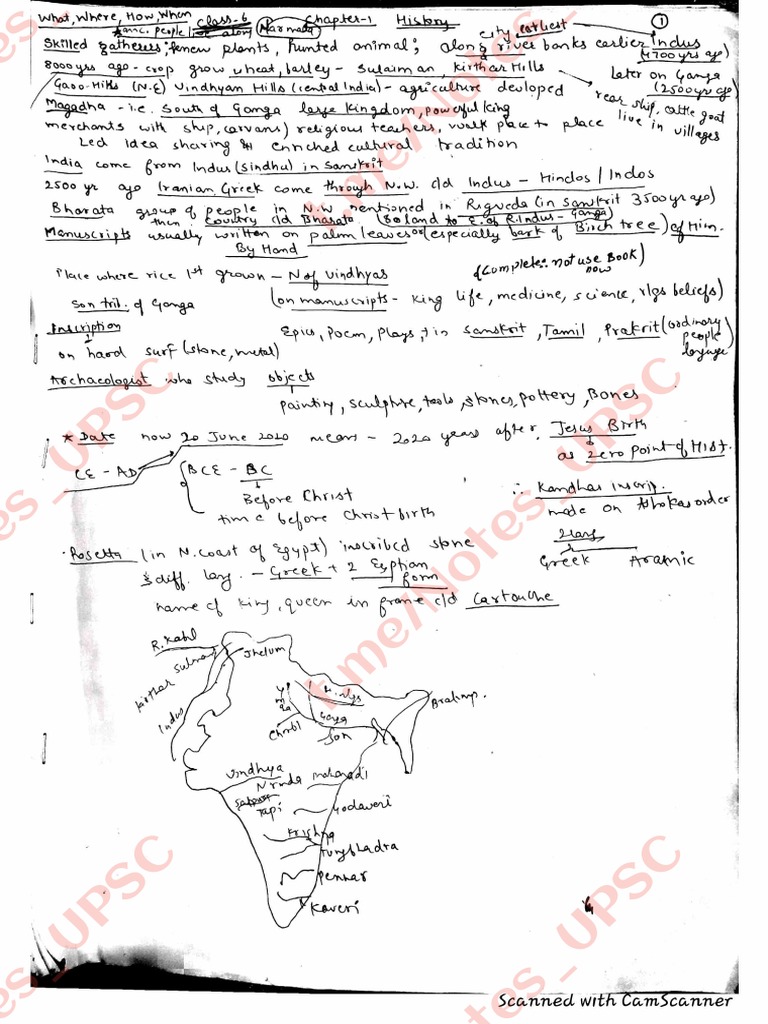 What, Where, How, When class-6 Chapter-1 History ①
anc. people along Narmada city earliest
Skilled gatherers; knew plants, hunted animal; along river banks earlier Indus
(4700 yrs ago)
8000 yrs ago - crop grow wheat, barley - Sulaiman, Kirthar Hills Later on Ganga
(2500 yr ago)
Garo-Hills (N.E) Vindhyam Hills (central India) - agriculture devloped rear ship, cattle goat
live in villages
Magadha - i.e. South of Ganga large kingdom, powerful king
merchants with ship, carvans) religious teachers, walk place to place
Led Idea sharing & enriched cultural tradition
India come from Indus (Sindhu) in Sanskrit
2500 yr ago Iranian, Greek come through N.W. c/d Indus - Hindos / Indos
Bharata group of people in N.W mentioned in Rigveda (in sanskrit 3500 yr ago)
then Country c/d Bharata (so land to E. of R. Indus - Ganga)
Manuscripts usually written on palm leaves or (especially bark of Birch tree) of Him.
By Hand
Place where rice 1st grown - N of Vindhyas (Complete: not use Book)
now
Son trib. of Ganga (on manuscripts - king life, medicine, science, rlgs beliefs)
Inscription Epics, Poem, Plays, + in Sanskrit, Tamil, Prakrit (ordinary
people
language)
on hard surf (stone, metal)
Archaeologist who study objects
painting, sculpture, tools, stones, pottery, Bones
* Date now 20 June 2020 means - 2020 years after Jesus Birth
as zero point of Hist.
CE - AD BCE - BC
Before Christ
time before Christ birth
∴ Kandhar Inscrip.
made on Ashokas order
2 lang
Greek Aramic
Rosetta (in N. coast of Egypt) inscribed stone
3 diff. lang. - Greek + 2 Egptian
form
name of king, queen in frame c/d Cartouche
R. Kabl
Jhelum
Suleman
Kirthar
Indus
Ganga
Brahmp.
Chmbl
Son
Vindhya
Nrmda Mahanadi
Satpura
Tapi Godaveri
Krishna
Tungbhadra
Pennar
Kaveri
Scanned with CamScanner
tme/Notes_UPSC